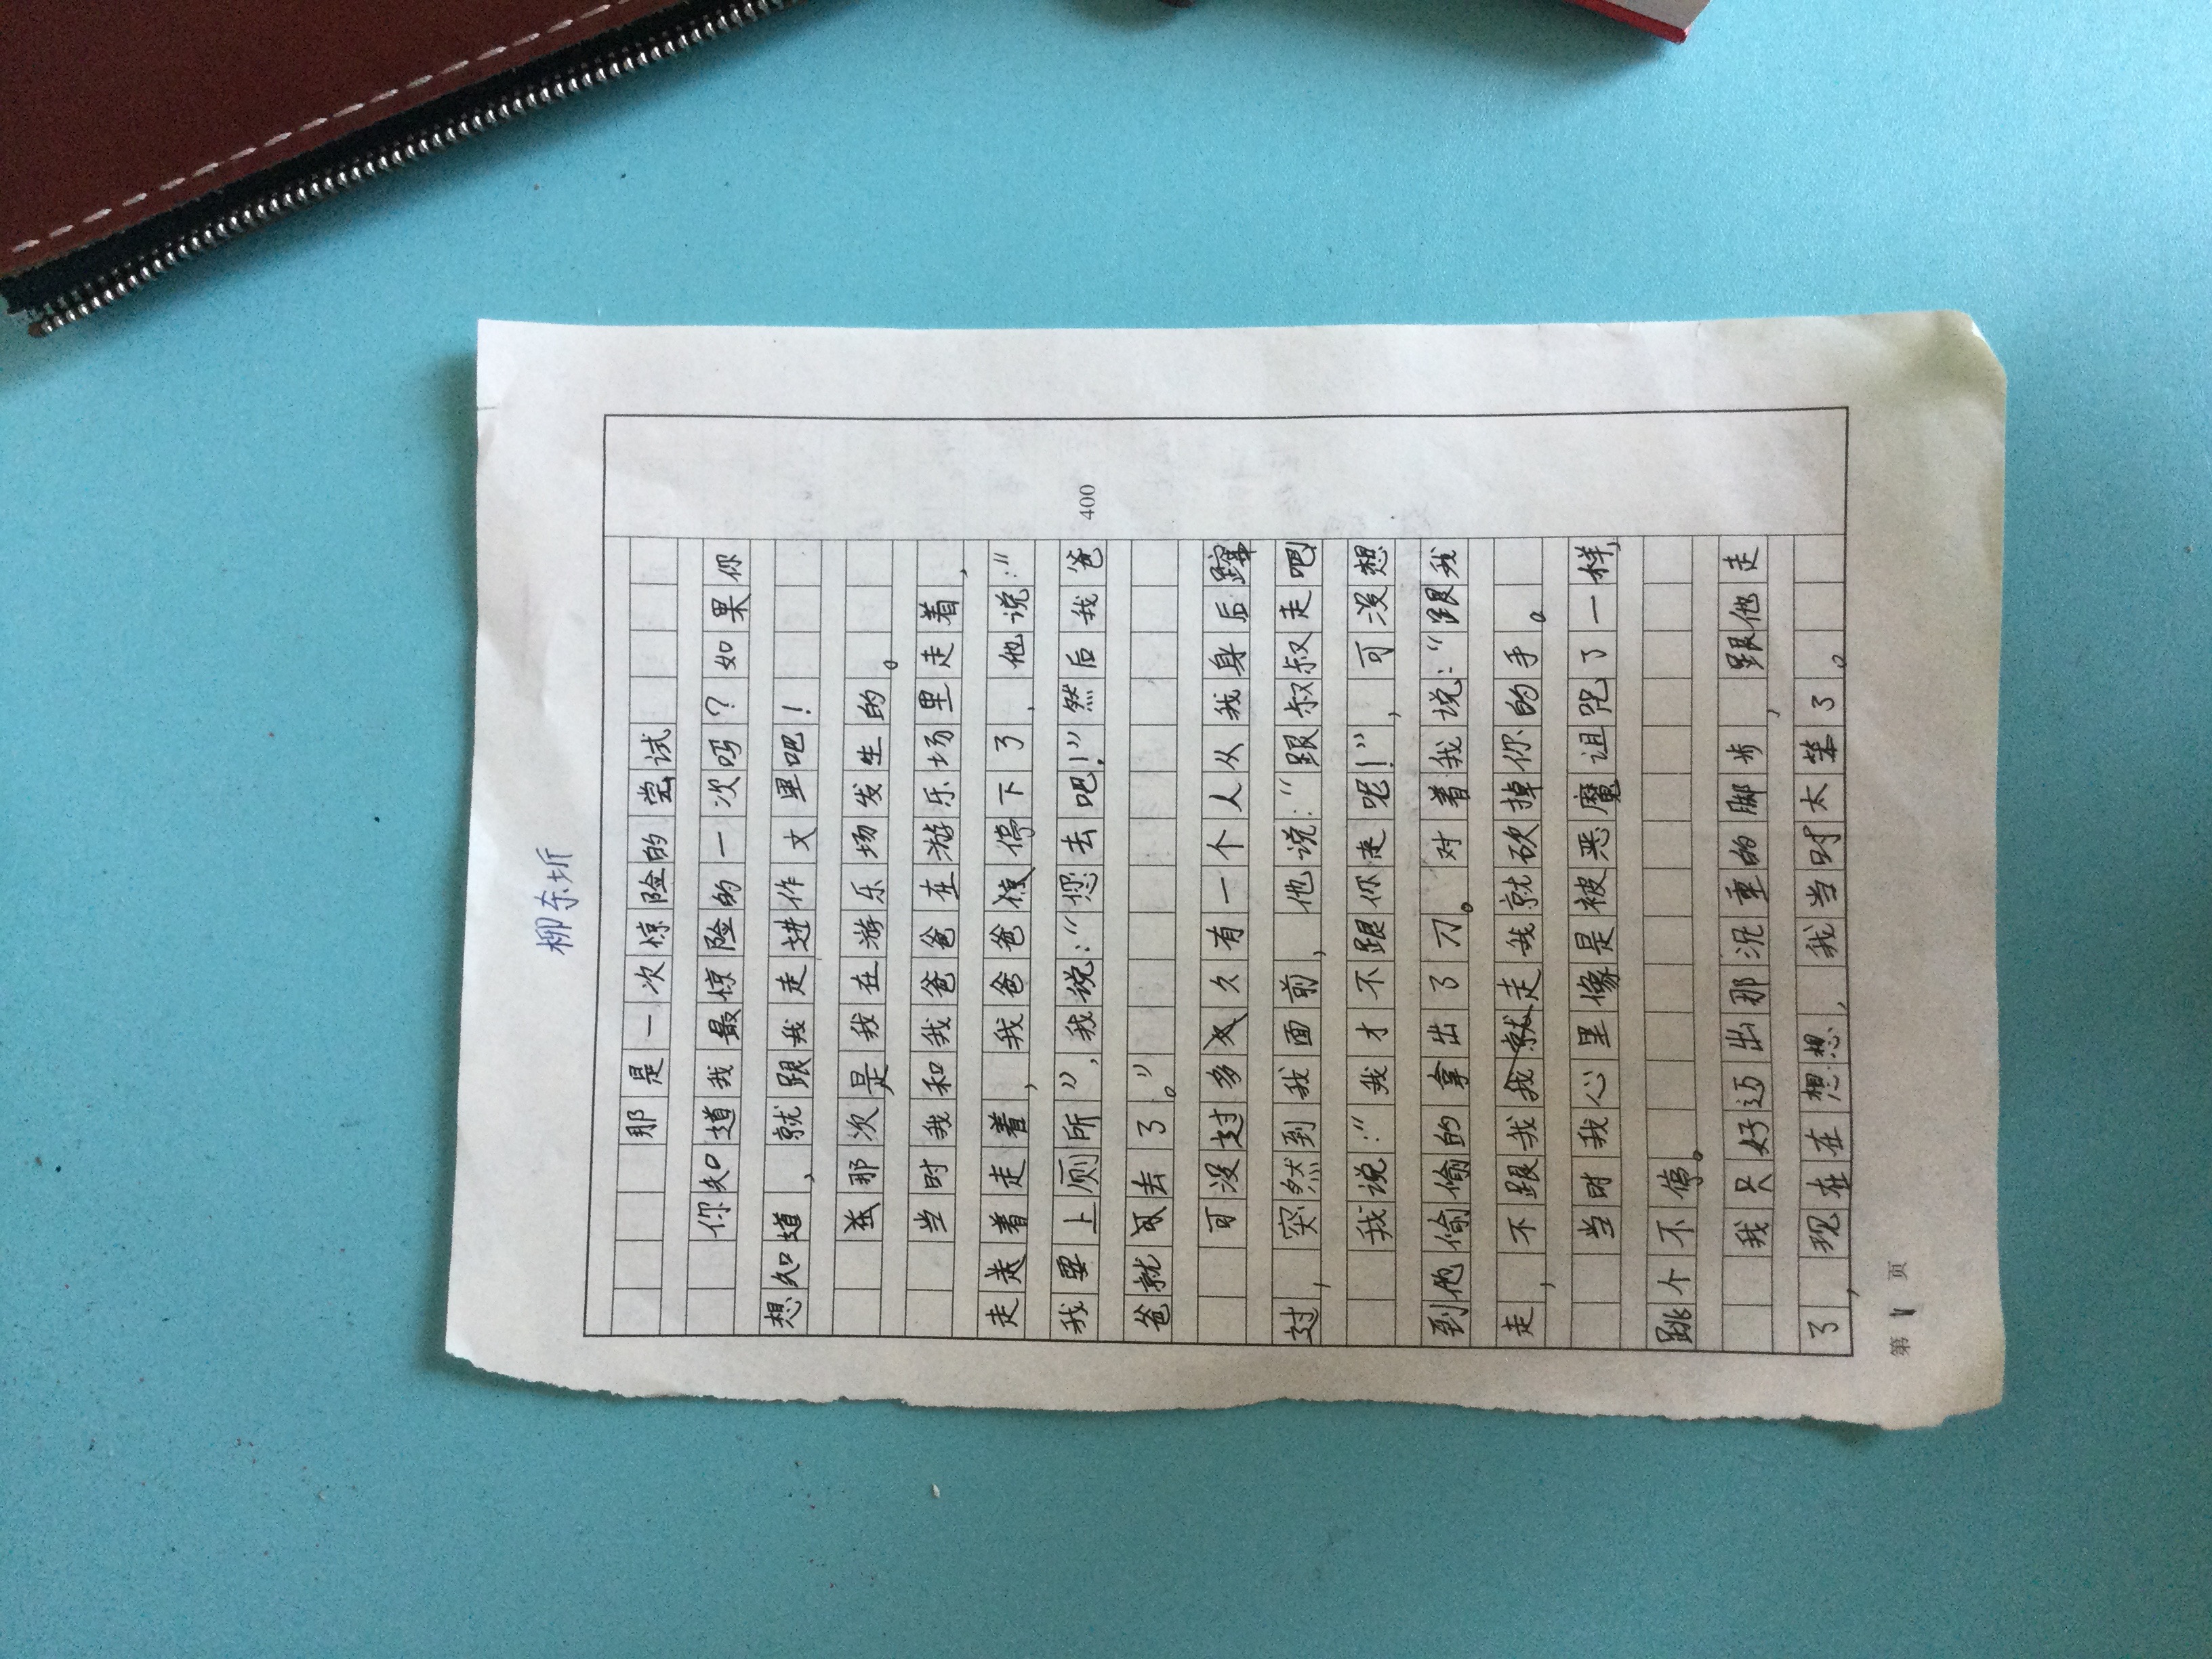 柳东圻
那是一次惊险的尝试
你知道我最惊险的一次吗？如果你
想知道，就跟我走进作文里吧！
那次是我在游乐场发生的。
当时我和我爸爸在游乐场里走着，
走走着走着，我爸爸停下了，他说：“
我要上厕所”，我说：“您去吧！”然后我爸
爸就去了。”
可没过多久有一个人从我身后蹿
过，突然到我面前，他说：“跟叔叔走吧
我说：“我才不跟你走呢！”，可没想
到他偷偷的拿出了刀。对着我说：“跟我
走，不跟我走我就砍掉你的手。
当时我心里像是被恶魔诅咒了一样，
跳个不停。
我只好迈出那沉重的脚步，跟他走
了，现在在想想，我当时太笨了。
400
第1页